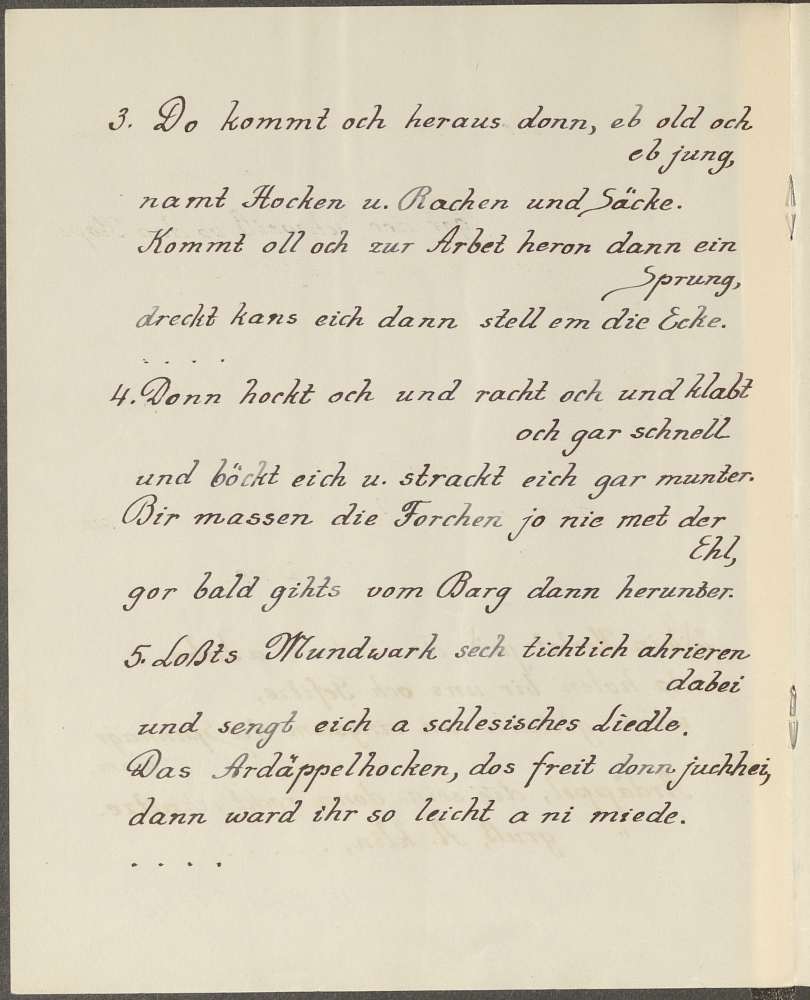 3. Do kommt och heraus donn, eb old och
eb jung,
namt Hocken u. Rachen und Säcke.
Kommt oll och zur Arbet heron dann ein
Sprung,
dreckt kans eich dann stell em die Ecke.
. . . .
4. Donn hockt och und racht och und klabt
och gar schnell
und böckt eich u. strackt eich gar munter.
Bir massen die Forchen jo nie met der
Ehl,
gor bald gihts vom Barg dann herunter.
5. Loßts Mundwark sech tichtich ahrieren
dabei
und sengt eich a schlesisches Liedle.
Das Ardäppelhocken, dos freit donn juchhei,
dann ward ihr so leicht a ni miede.
. . . .